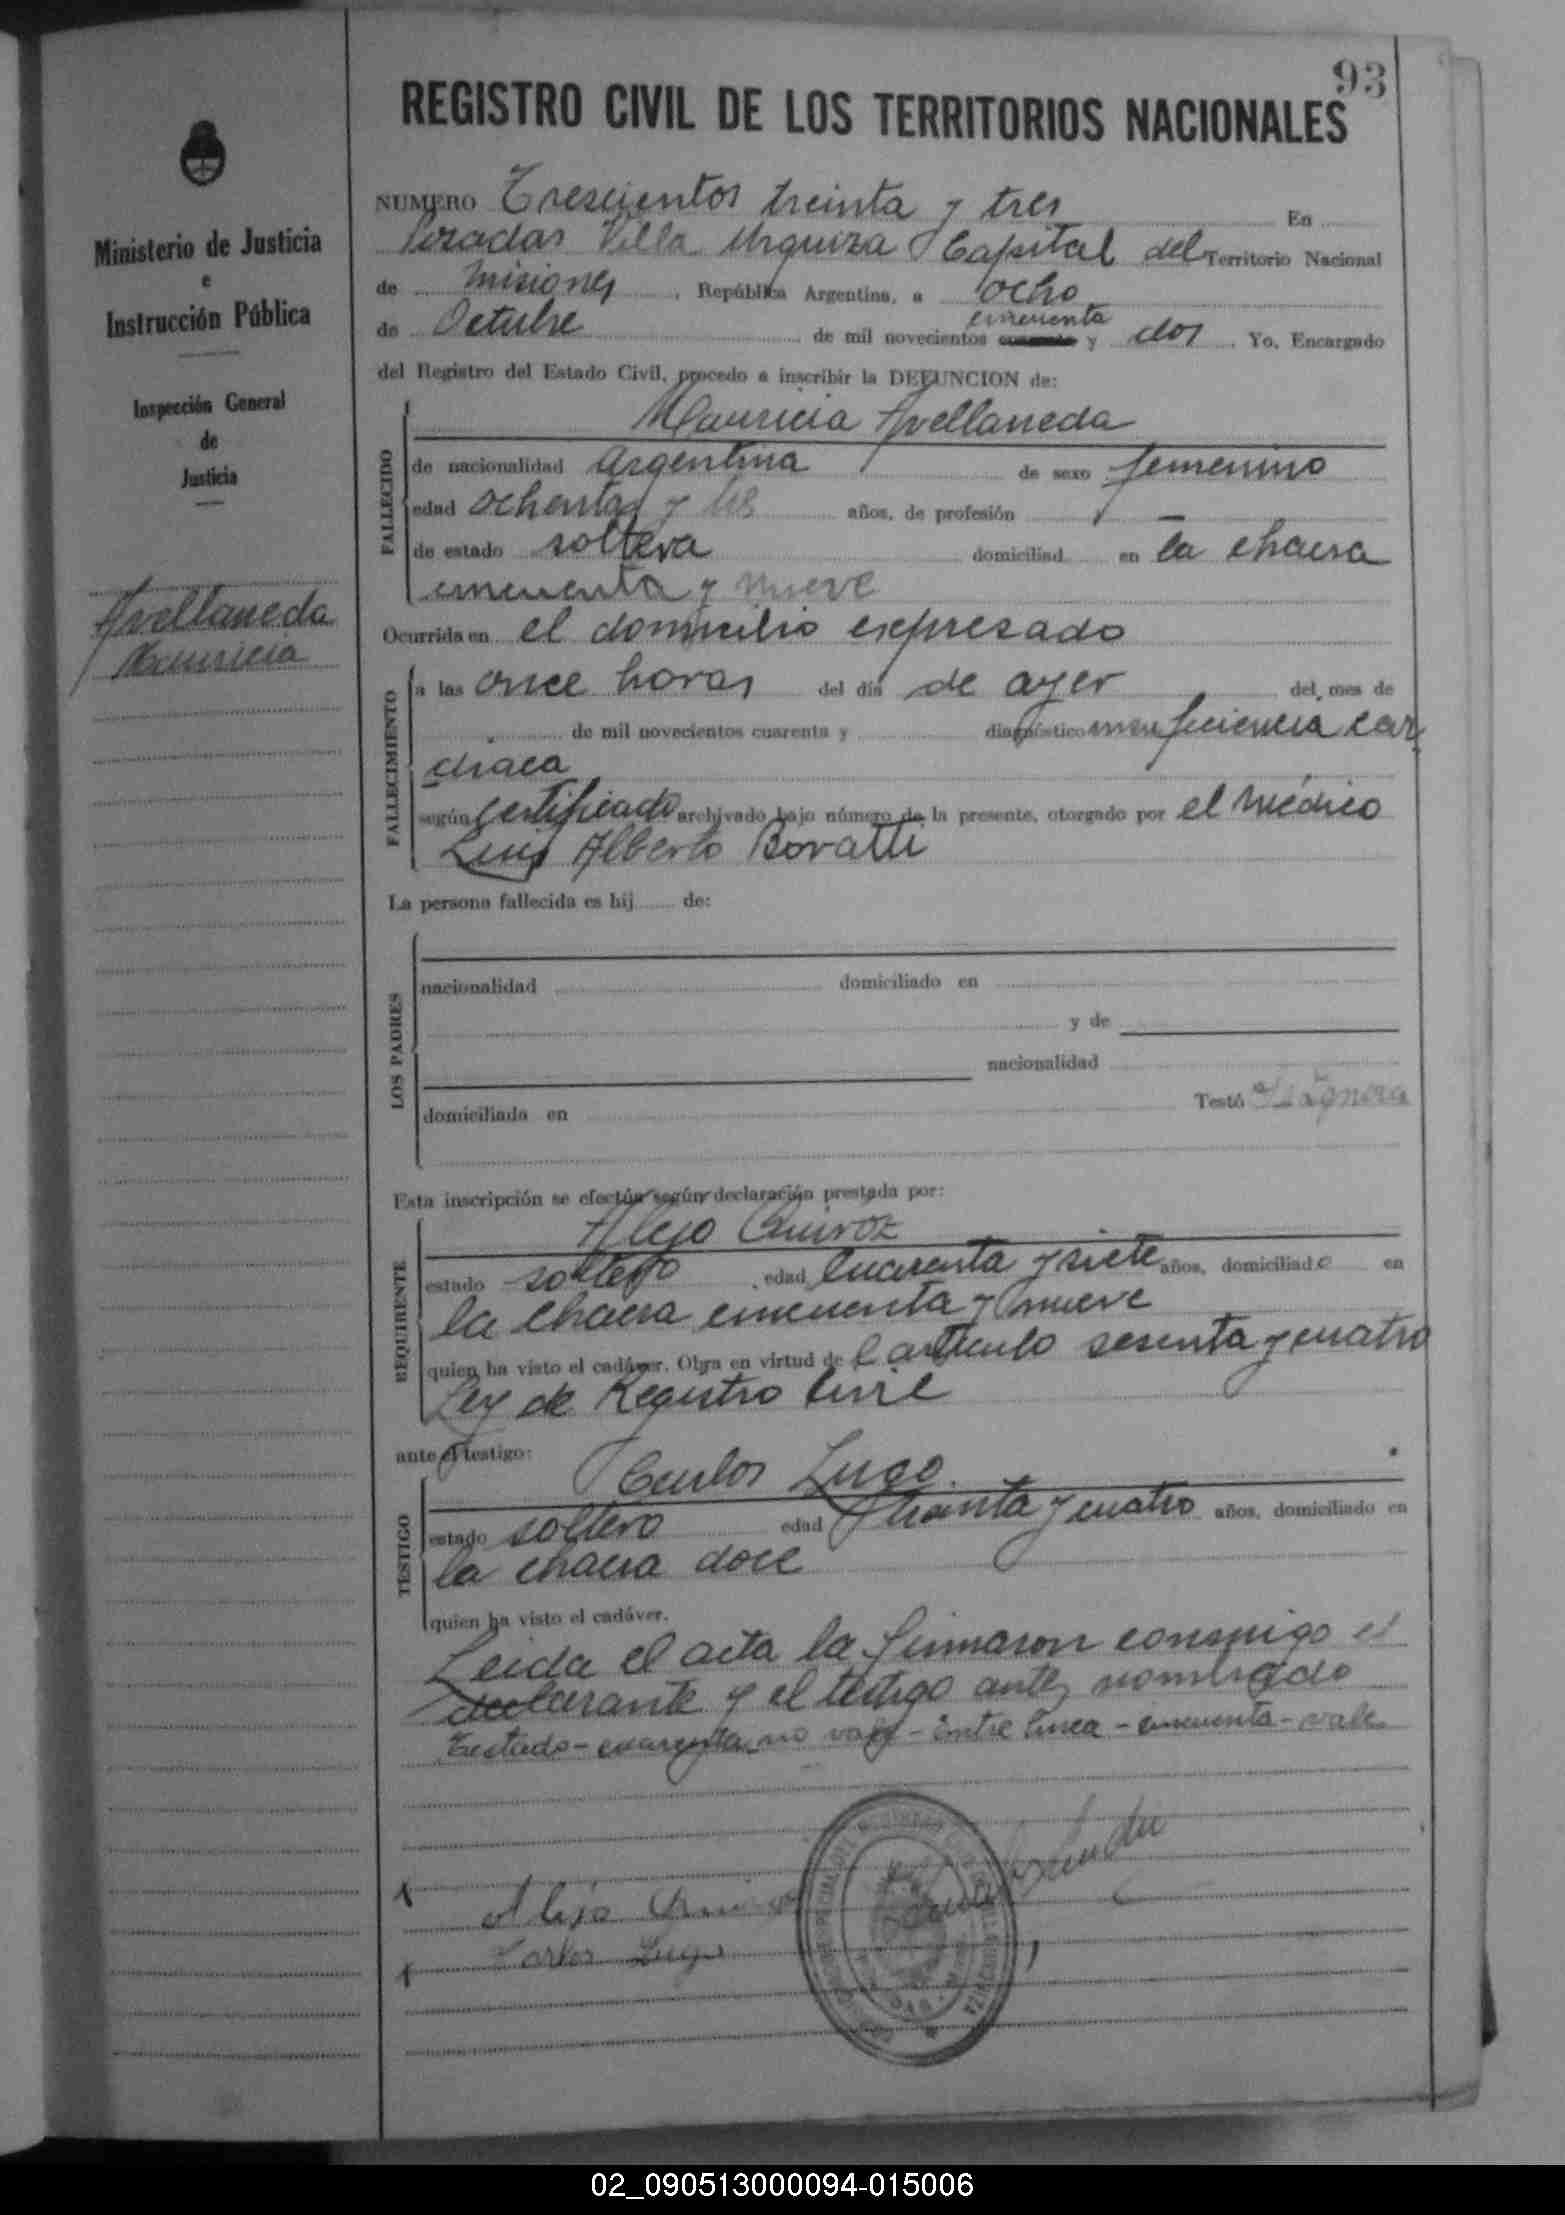 93
REGISTRO CIVIL DE LOS TERRITORIOS NACIONALES
Ministerio de Justicia
e
Instrucción Pública
Inspección General
de
Justicia
Avellaneda
Mauricia
NUMERO Trescientos treinta y tres En
Posadas Villa Urquiza Capital del Territorio Nacional
de Misiones, República Argentina, a ocho
cincuenta
de Octubre de mil novecientos cuarenta y dos. Yo, Encargado
del Registro del Estado Civil, procedo a inscribir la DEFUNCION de:
Mauricia Avellaneda
FALLECIDO
de nacionalidad Argentina de sexo femenino
edad ochenta y tres años, de profesión —
de estado soltera domiciliad en la chacra
cincuenta y nueve
Ocurrida en el domicilio expresado
FALLECIMIENTO
a las once horas del día de ayer del mes de
de mil novecientos cuarenta y diagnóstico insuficiencia car
diaca
según certificado archivado bajo número de la presente, otorgado por el médico
Luis Alberto Boratti
La persona fallecida es hij de:
LOS PADRES
nacionalidad domiciliado en
y de
nacionalidad
domiciliada en Testó Se ignora
Esta inscripción se efectúa según declaración prestada por:
Alejo Quiroz
REQUIRENTE
estado soltero edad cuarenta y siete años, domiciliado en
la chacra cincuenta y nueve
quien ha visto el cadáver. Obra en virtud del artículo sesenta y cuatro
Ley de Registro Civil
ante el testigo:
Carlos Lugo.
TESTIGO
estado soltero edad treinta y cuatro años, domiciliado en
la chacra doce
quien ha visto el cadáver.
Leida el acta la firmaron conmigo el
declarante y el testigo antes nombrado
Testado - cuarenta no vale - Entre linea - cincuenta - vale
Alejo Quiroz
Carlos Lugo
02_090513000094-015006